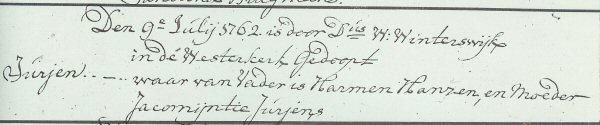 Den 9e Julij 1762 is door Dus W: Winterswijk
in de Westerkerk Gedoopt
Jürjen . . – . . waar van Vader is Harmen Hanzen, en Moeder
Jacomijntie Jürjens